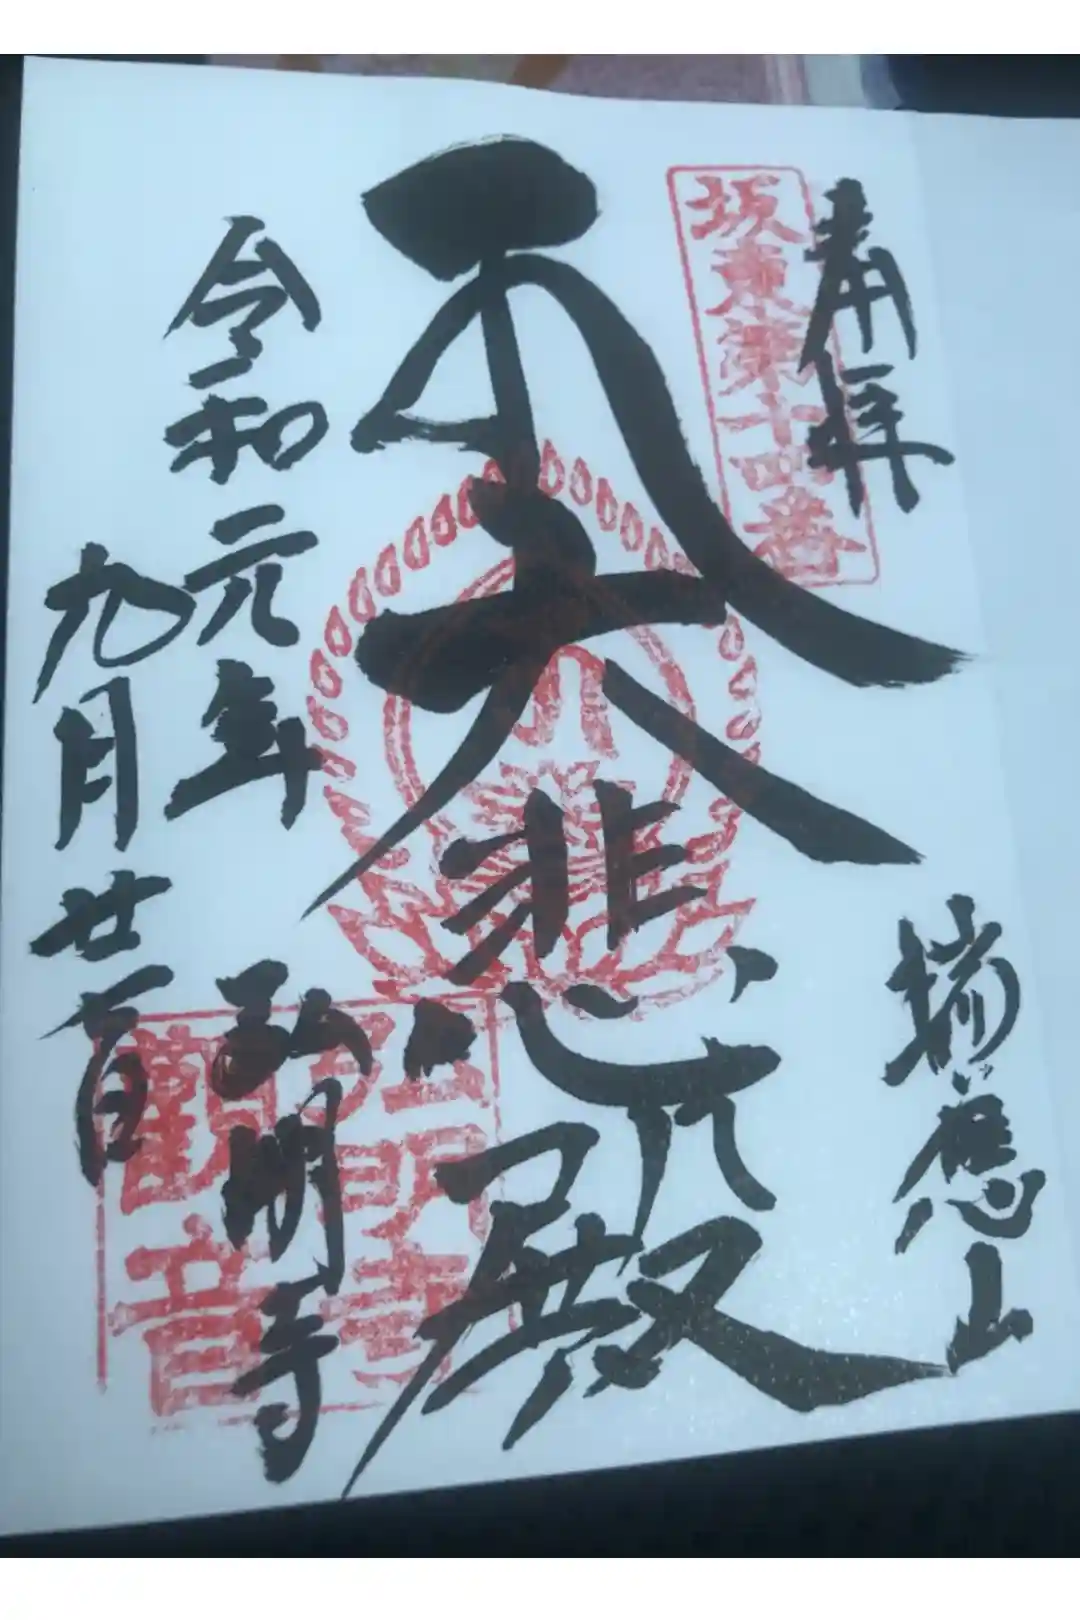 奉拝
坂東第十四番
瑞應山
大悲殿
令和元年
九月廿一日
弘明寺
弘明寺
觀音